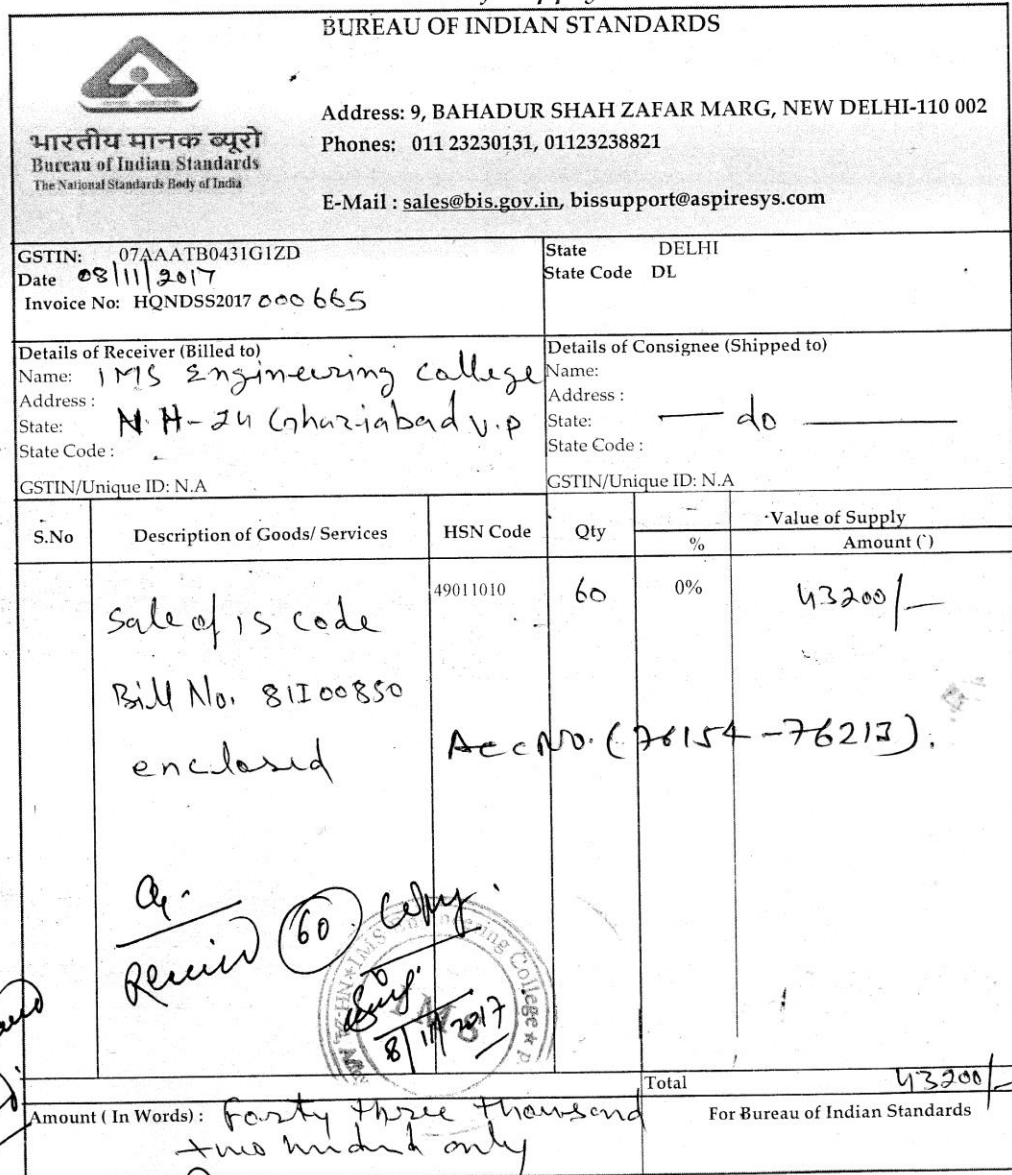 BUREAU OF INDIAN STANDARDS
Address: 9, BAHADUR SHAH ZAFAR MARG, NEW DELHI-110 002
भारतीय मानक ब्यूरो
Bureau of Indian Standards
The National Standards Body of India
Phones: 011 23230131, 01123238821
E-Mail : sales@bis.gov.in, bissupport@aspiresys.com
GSTIN: 07AAATB0431G1ZD
Date 08/11/2017
Invoice No: HQNDSS2017 000665
State DELHI
State Code DL
Details of Receiver (Billed to)
Name: IMS Engineering College
Address :
State: N.H-24 Ghaziabad U.P
State Code :
GSTIN/Unique ID: N.A
Details of Consignee (Shipped to)
Name:
Address :
State: — do —
State Code :
GSTIN/Unique ID: N.A
S.No Description of Goods/ Services HSN Code Qty Value of Supply
% Amount (`)
Sale of IS code 49011010 60 0% 43200/-
Bill No. 81I00850
enclosed
Acc No. (76154-76213).
Received 60 Copy
IMS Engineering College
8/11/2017
Total 43200/-
Amount ( In Words) : Forty three thousand
two hundred only
For Bureau of Indian Standards